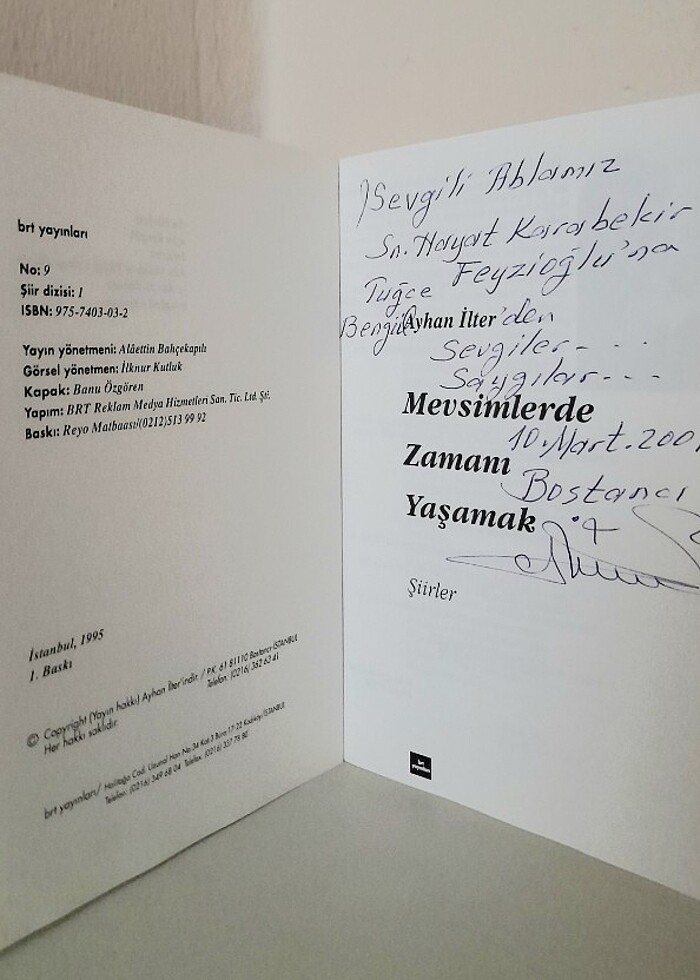 brt yayınları
No: 9
Şiir dizisi: 1
ISBN: 975-7403-03-2
Yayın yönetmeni: Alâettin Bahçekapılı
Görsel yönetmen: İlknur Kutluk
Kapak: Banu Özgören
Yapım: BRT Reklam Medya Hizmetleri San. Tic. Ltd. Şti.
Baskı: Reyo Matbaası/(0212)513 99 92
İstanbul, 1995
1. Baskı
© Copyright (Yayın hakkı) Ayhan İlter'indir. / P.K. 61 81110 Bostancı-İSTANBUL
Her hakkı saklıdır. Telefon: (0216) 362 63 41
brt yayınları/ Halitağa Cad. Uzunal Han No:34 Kat:3 Büro:17-22 Kadıköy/İSTANBUL
Telefon: (0216) 349 68 04 Telefax: (0216) 337 78 80
Sevgili Ablamız
Sn. Hayat Karabekir
Feyzioğlu'na
Tuğçe
Bengül
Ayhan İlter'den
Sevgiler- . . .
Saygılar- - -
Mevsimlerde
10.Mart.200
Zamanı
Bostancı
Yaşamak
Şiirler
brt
yayınları